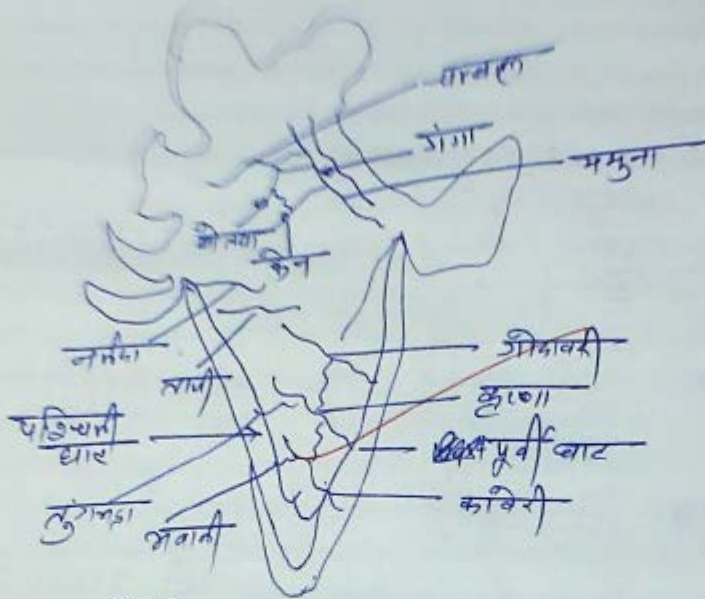 चम्बल
गंगा
यमुना
बेतवा
केन
नर्मदा
ताप्ती
गोदावरी
कृष्णा
पश्चिमी
घाट
पूर्वी घाट
तुंगभद्रा
भवानी
कावेरी